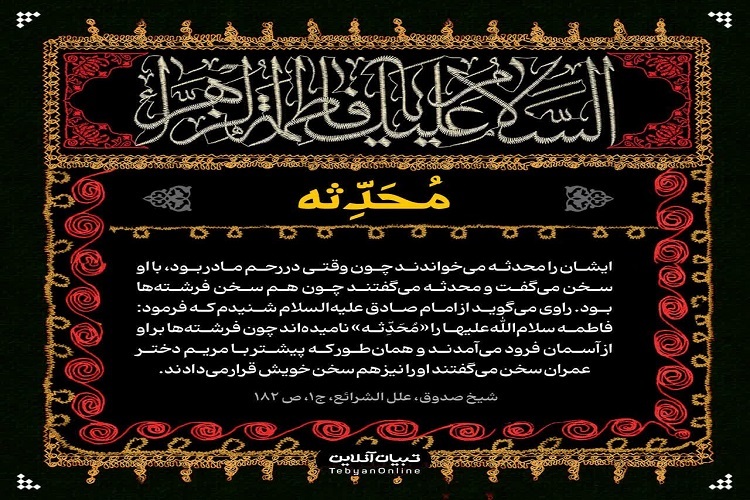 السلام علیک یا فاطمة الزهرا
مُحَدِّثه
ایشان را محدثه می‌خواندند چون وقتی در رحم مادر بود، با او
سخن می‌گفت و محدثه می‌گفتند چون هم سخن فرشته‌ها
بود. راوی می‌گوید از امام صادق علیه‌السلام شنیدم که فرمود:
فاطمه سلام‌الله‌علیها را «مُحَدِّثه» نامیده‌اند چون فرشته‌ها بر او
از آسمان فرود می‌آمدند و همان طور که پیشتر با مریم دختر
عمران سخن می‌گفتند او را نیز هم سخن خویش قرار می‌دادند.
شیخ صدوق، علل الشرائع، ج۱، ص ۱۸۲
تبیان آنلاین
TebyanOnline